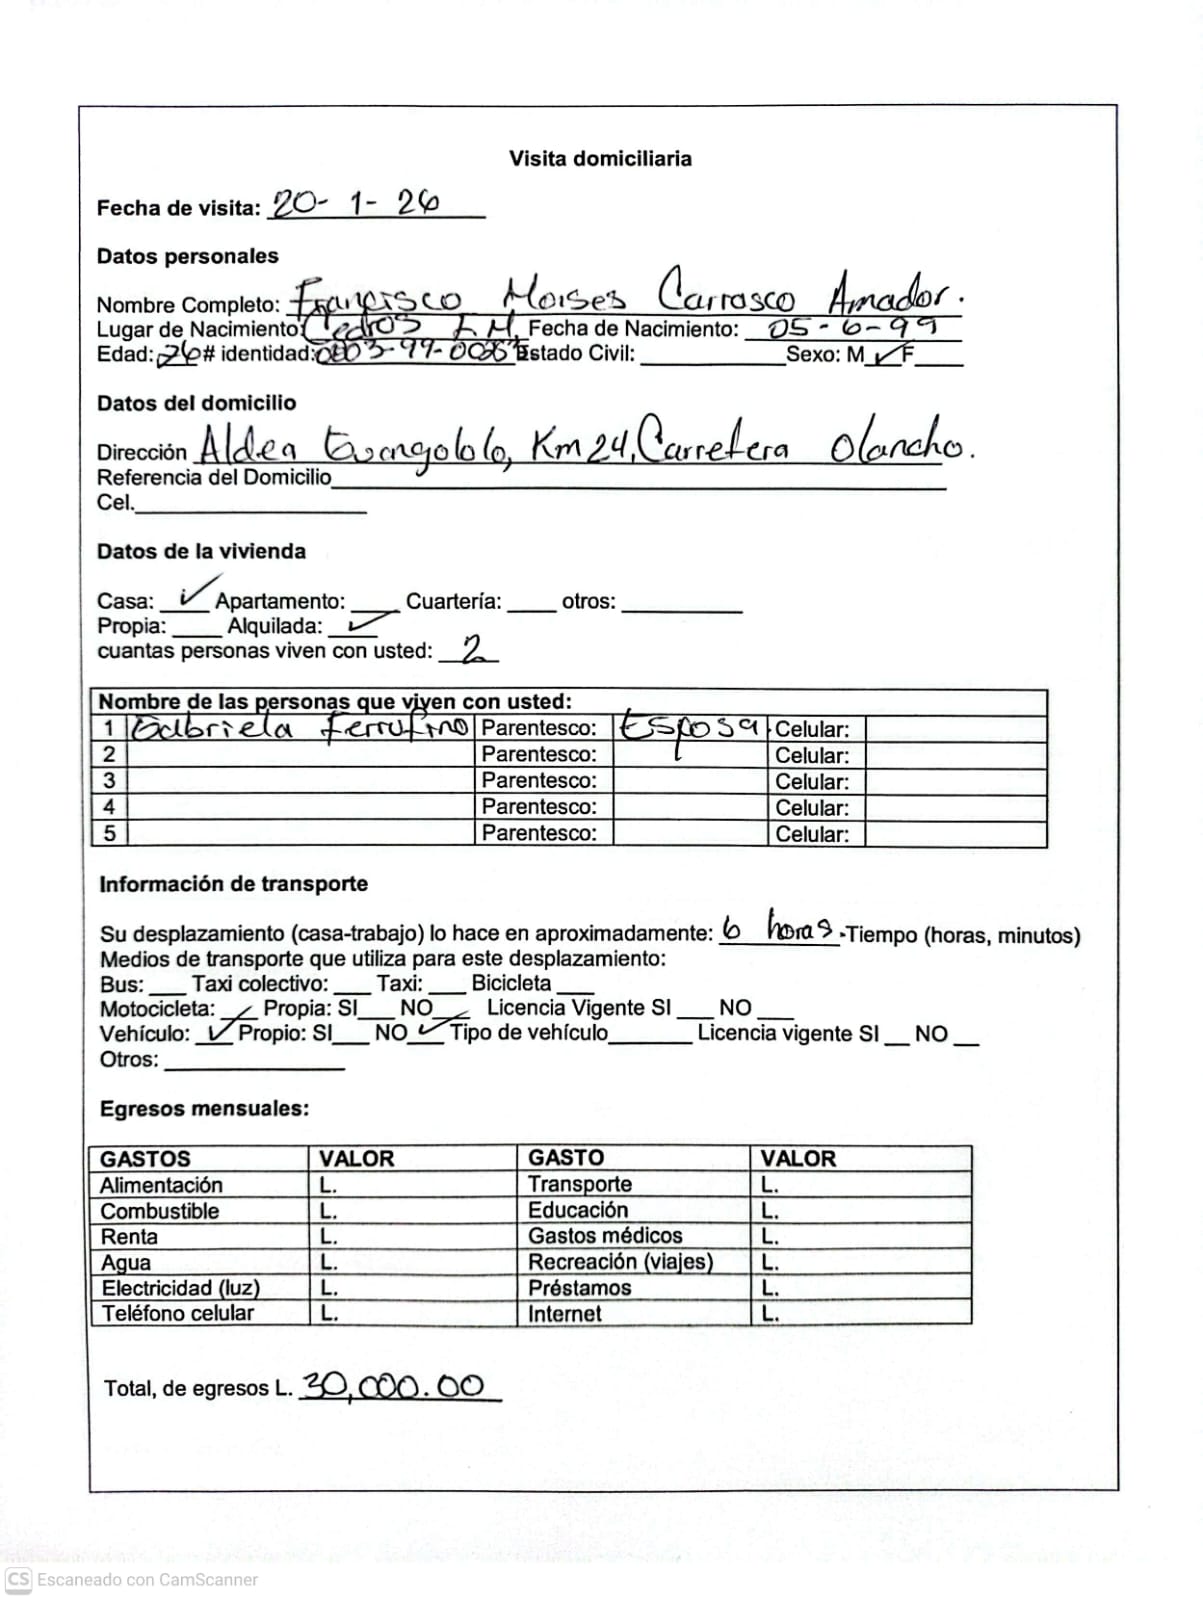 Visita domiciliaria
Fecha de visita: 20- 1- 26
Datos personales
Nombre Completo: Francisco Moises Carrasco Amador.
Lugar de Nacimiento: Cedros F.M. Fecha de Nacimiento: 05-6-99
Edad: 26 # identidad: Estado Civil: ____ Sexo: M ✓ F ____
Datos del domicilio
Dirección Aldea Km 24, Carretera Olancho.
Referencia del Domicilio ____
Cel. ____
Datos de la vivienda
Casa: ✓ Apartamento: ____ Cuartería: ____ otros: ____
Propia: ____ Alquilada: ✓
cuantas personas viven con usted: 2
Nombre de las personas que viven con usted:
1 Gabriela Ferrufino Parentesco: Esposa. Celular:
2 Parentesco: Celular:
3 Parentesco: Celular:
4 Parentesco: Celular:
5 Parentesco: Celular:
Información de transporte
Su desplazamiento (casa-trabajo) lo hace en aproximadamente: 6 horas.Tiempo (horas, minutos)
Medios de transporte que utiliza para este desplazamiento:
Bus: ___ Taxi colectivo: ___ Taxi: ___ Bicicleta ___
Motocicleta: ✓ Propia: SI ___ NO ✓ Licencia Vigente SI ___ NO ___
Vehículo: ✓ Propio: SI ___ NO ✓ Tipo de vehículo ____ Licencia vigente SI __ NO __
Otros: ____
Egresos mensuales:
GASTOS VALOR GASTO VALOR
Alimentación L. Transporte L.
Combustible L. Educación L.
Renta L. Gastos médicos L.
Agua L. Recreación (viajes) L.
Electricidad (luz) L. Préstamos L.
Teléfono celular L. Internet L.
Total, de egresos L. 30,000.00
CS Escaneado con CamScanner